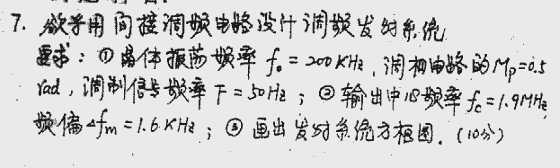 7. 欲采用间接调频电路设计调频发射系统
要求：① 晶体振荡频率 f₀ = 200KHz，调相电路的Mp=0.5
rad，调制信号频率 F = 50Hz；② 输出中心频率 fc = 1.9MHz，
频偏 Δfm = 1.6KHz；③ 画出发射系统方框图．(10分)